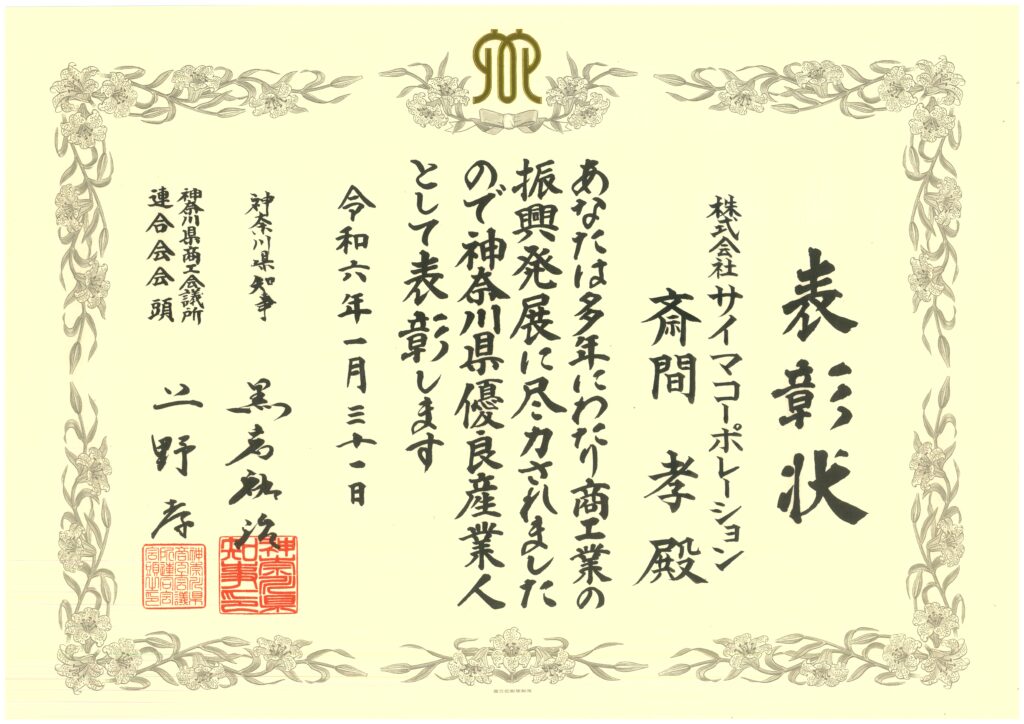 表彰状
株式会社サイマコーポレーション
斎間 孝 殿
あなたは多年にわたり商工業の
振興発展に尽力されました
ので神奈川県優良産業人
として表彰します
令和六年一月三十一日
神奈川県知事 黒岩祐治
神奈川県知事印
神奈川県商工会議所
連合会会頭 上野 孝